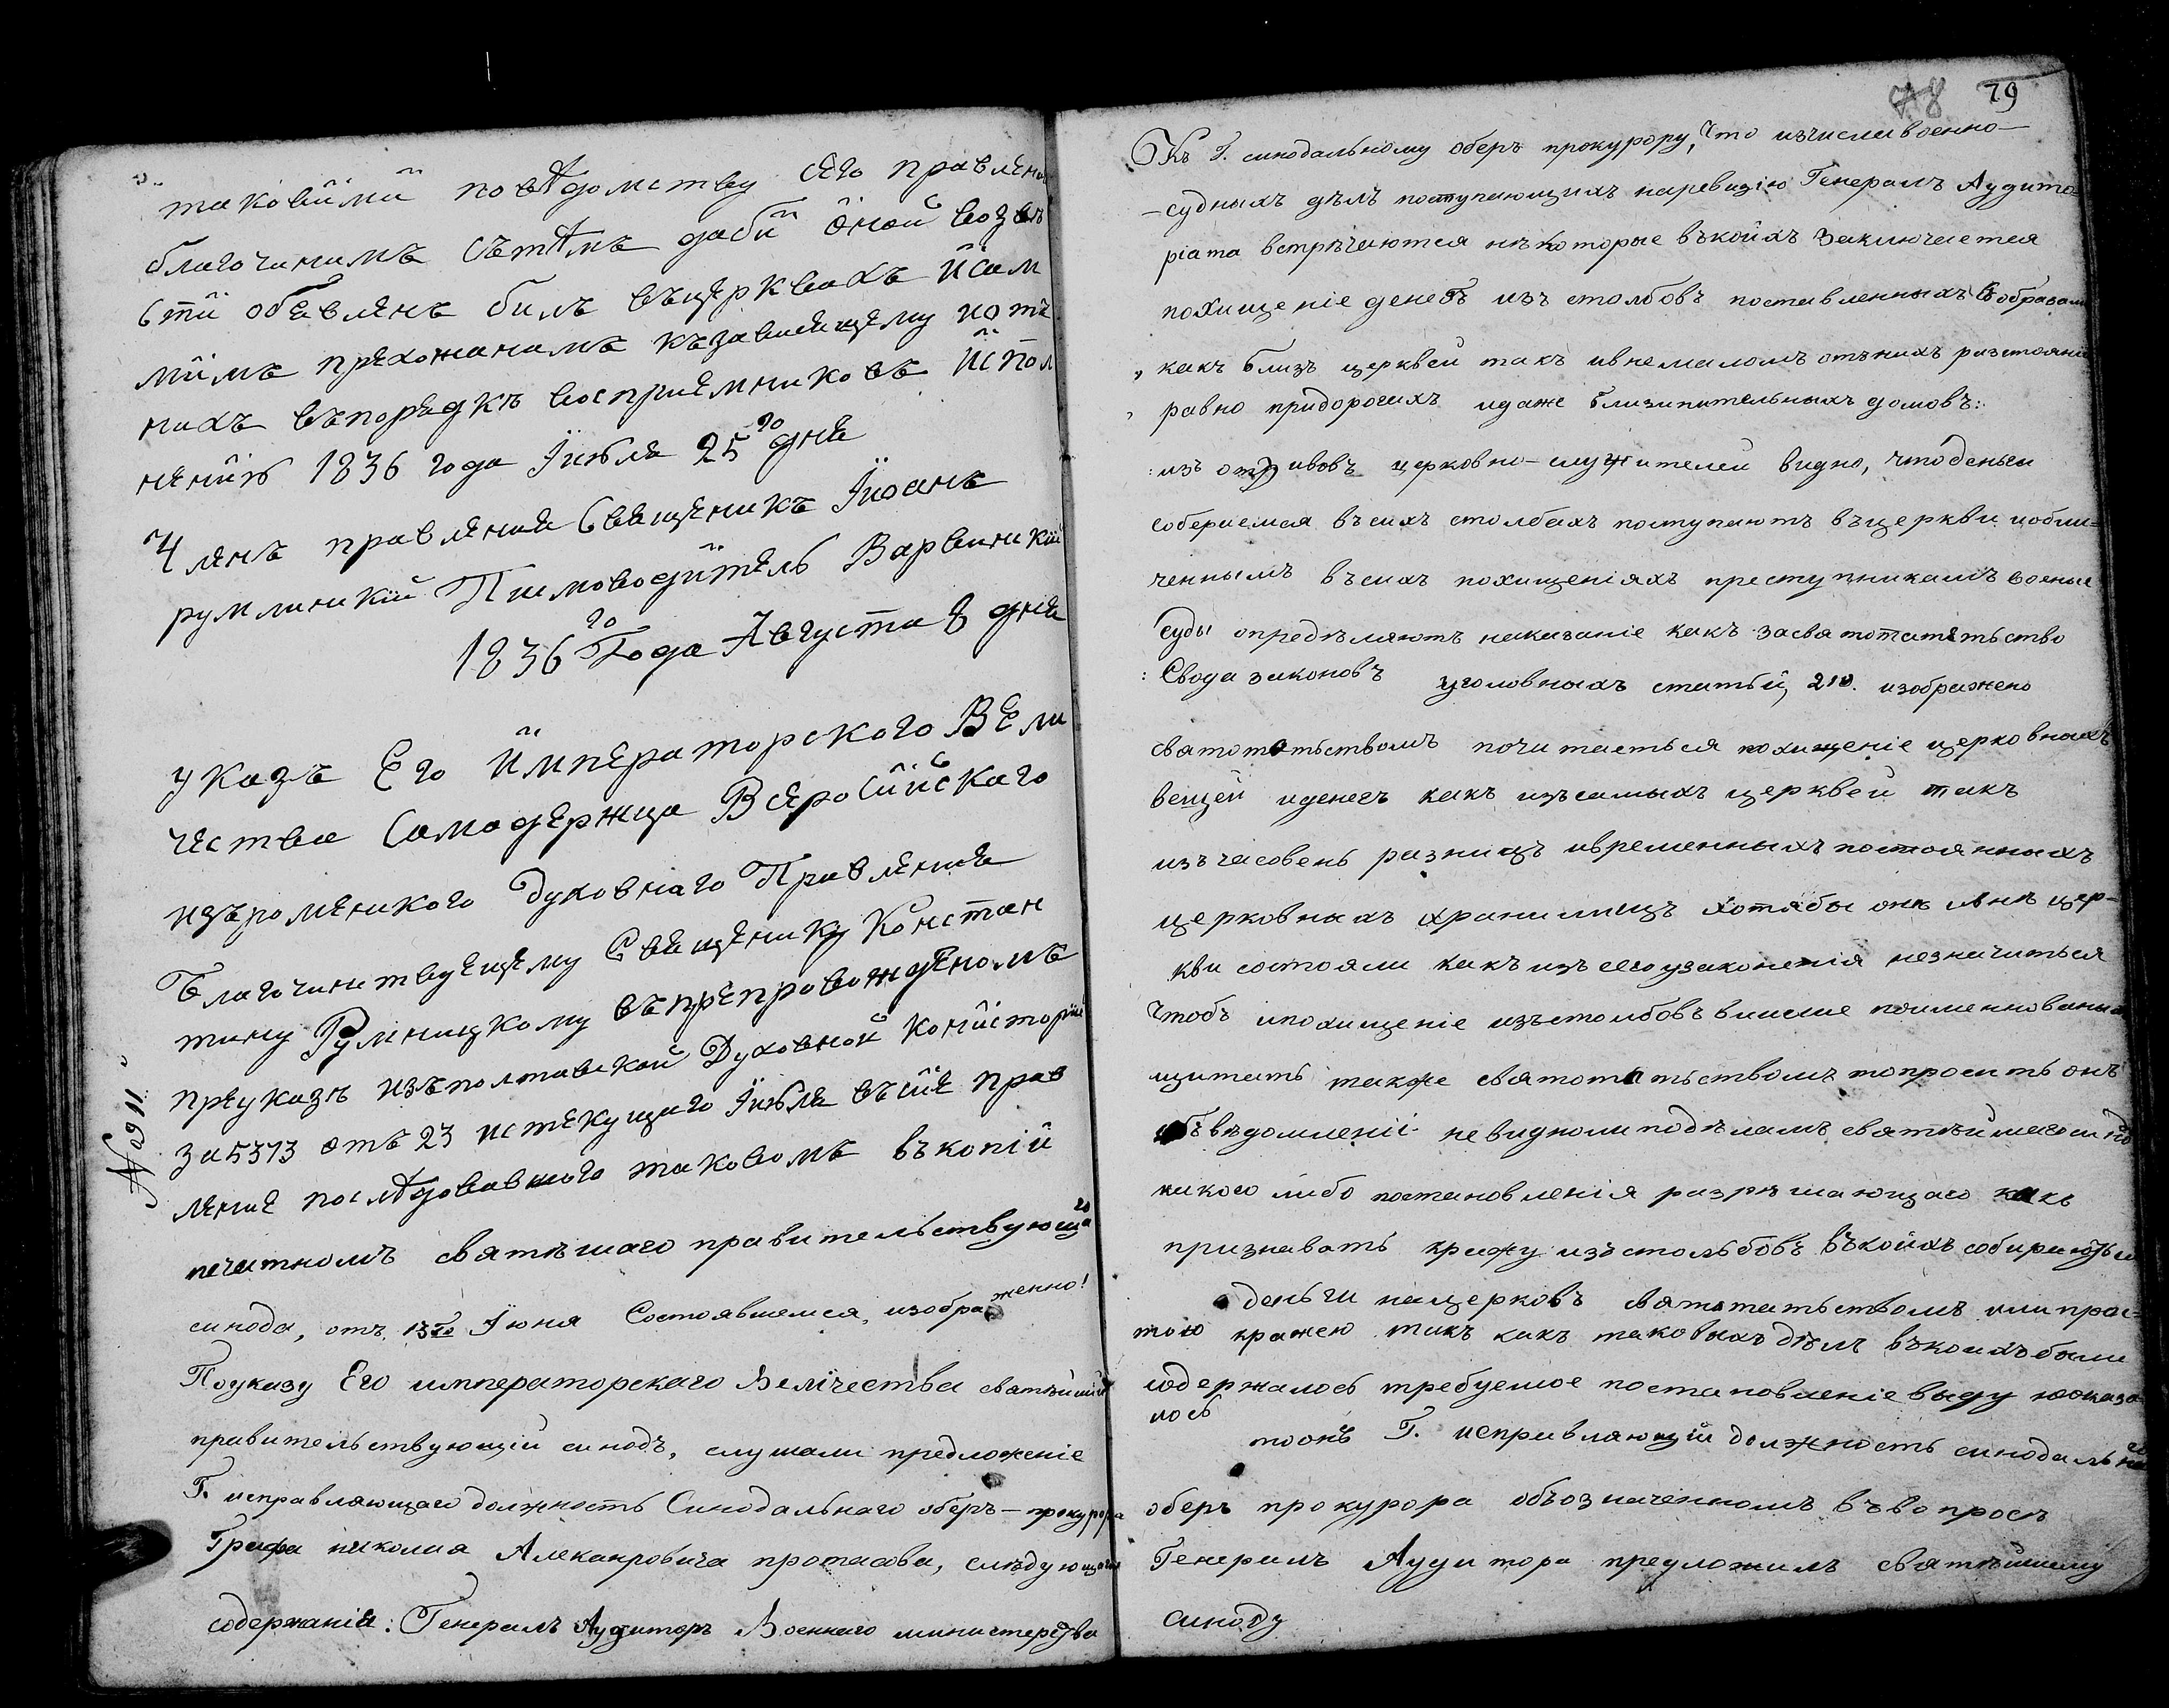 таковїмй поведомству сего правлени
благочинимъ съ темъ дабй оной возвъ
стй обявленъ билъ въцерквахъ йсам
мймъ прихожанамъ къзависящему нотъ
нихъ въпорядкъ восприемниковъ йспол
ненйю 1836 года Їюля 25го дня
Членъ правления Священикъ Їюанъ
румлинский Писмоводйтель Варвинский
1836го Года Августа 8 дня
указъ Его Ймператорского Вели
чества Самодержца Всеросййскаго
изъроменского Духовнаго Правления
Благочинствующему Священику Констан
тину Румницкому въпрепровожденомъ
преуказъ изъполтавской Духовной Консисторїи
№ 911
за 5373 отъ 23 истекущаго Їюля въсие прав
ление последовавшаго таковомъ въ копїй
печатномъ святъшаго правительствующаго
синода, отъ 13го Їюня Состоявшемся, изображенно!
Поуказу Его императорскаго Величества святъйшїй
правительствующїй синодъ, слушали предложенїе
Г. исправляющаго должность Синодальнаго оберъ-прокурора
Графа николая Алексанровича протасова, слѣдующаго
содержанія: Генералъ Аудиторъ Военнаго министерства
78 79
Къ Г. синодальному оберъ прокурору, Что изчисла военно-
-судныхъ дѣлъ поступающихъ наревизію Генералъ Аудито
ріата встрѣчаются нѣкоторые въкоихъ Заключается
похищеніе денегъ изъ столбовъ поставленныхъ Собразам
какъ близъ церквей такъ ивнемаломъ отъ нихъ разстояніи
равно придорогахъ идаже близипительныхъ домовъ:
изъ отзывовъ церковно-служителей видно, что деньги
собераемая въ сихъ столбахъ поступаютъ въ церкви иобли-
ченнымъ въ сихъ похищеніяхъ преступникамъ военые
Суды опредѣляютъ наказаніе какъ за святотатьство
Свода законовъ уголовныхъ статьй, 210. изображено
святотатьствомъ почитаеться похищеніе церковныхъ
вещей иденегъ какъ изъ самыхъ церквей такъ
изъ часовень ризницъ ивременныхъ постоянныхъ
церковныхъ хранилищъ хотябы онѣ ивнѣ цер-
кви состояли какъ изъ сего узаконенія незначиться
Чтобъ ипохищеніе изъ столбовъ вышше поименнованыхъ
щитать также святотатьствомъ то проситъ онъ
объ вѣдомленіі невиднолиподѣламъ святѣйшаго сино
никого либо постановленія разрѣшающаго какъ
признавать кражу изъ стольбовъ въкоихъ собираютьси
деньги нацерковъ святотатьствомъ или прос-
тою кражею такъ какъ таковыхъ дѣлъ въкоихъ были
содержалось требуемое постановленіе ввиду неоказа
лось
тоонъ Г. исправляющій должность синодальнаго
оберъ прокурора обьозначенномъ въвопросѣ
Генералъ Аудитора предложилъ святѣйшему
синоду